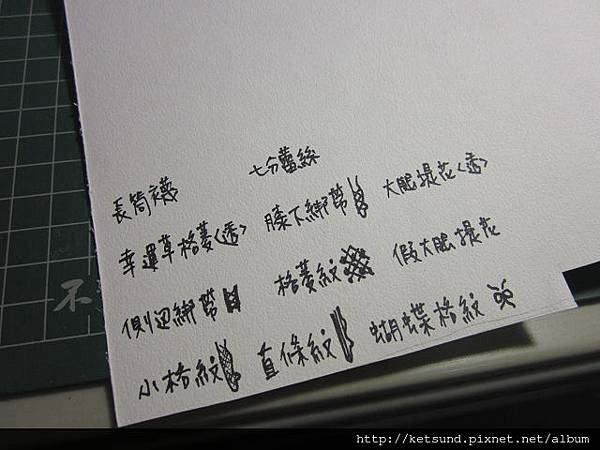 長筒襪 七分蕾絲
幸運草格菱<透> 膝下綁帶 大腿提花<透>
側邊綁帶 格菱紋 假大腿提花
小格紋 直條紋 蝴蝶格紋
不
http://ketsund.pixnet.net/album